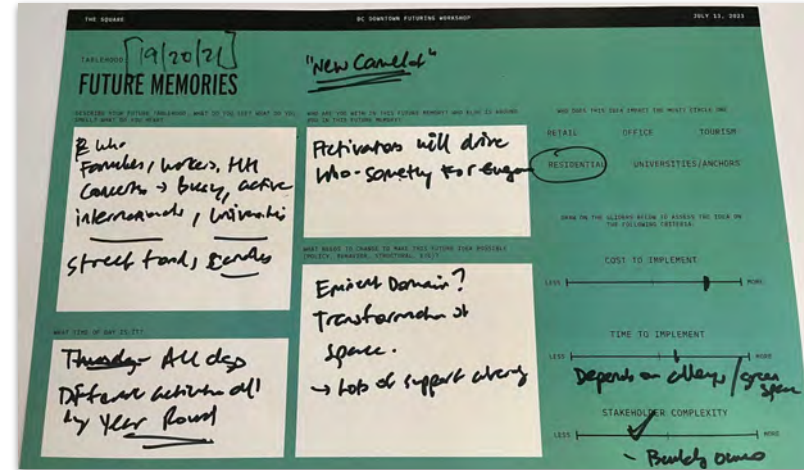 THE SQUARE
BC DOWNTOWN FUTURING WORKSHOP
JULY 13, 2023
TABLEHOOD [19/20/21]
FUTURE MEMORIES
"New Camelot"
DESCRIBE YOUR FUTURE TABLEHOOD. WHAT DO YOU SEE? WHAT DO YOU
SMELL? WHAT DO YOU HEAR?
who
Families, workers, HH
Concerts → Busy, active
internationals, Universities
Street food,
WHAT TIME OF DAY IS IT?
Thursday - All day
Different all
day Year Round
WHO ARE YOU WITH IN THIS FUTURE MEMORY? WHO ELSE IS AROUND
YOU IN THIS FUTURE MEMORY?
Activators will drive
who - for
WHAT NEEDS TO CHANGE TO MAKE THIS FUTURE IDEA POSSIBLE
(POLICY, BEHAVIOR, STRUCTURAL, ETC)?
Eminent Domain?
Transformation of
space.
→ Lots of support already
WHO DOES THIS IDEA IMPACT THE MOST? CIRCLE ONE
RETAIL
OFFICE
TOURISM
RESIDENTIAL
UNIVERSITIES/ANCHORS
DRAW ON THE SLIDERS BELOW TO ASSESS THE IDEA ON
THE FOLLOWING CRITERIA:
COST TO IMPLEMENT
LESS
MORE
TIME TO IMPLEMENT
LESS
MORE
Depends on alleys/green
space
STAKEHOLDER COMPLEXITY
LESS
MORE
- Building owners